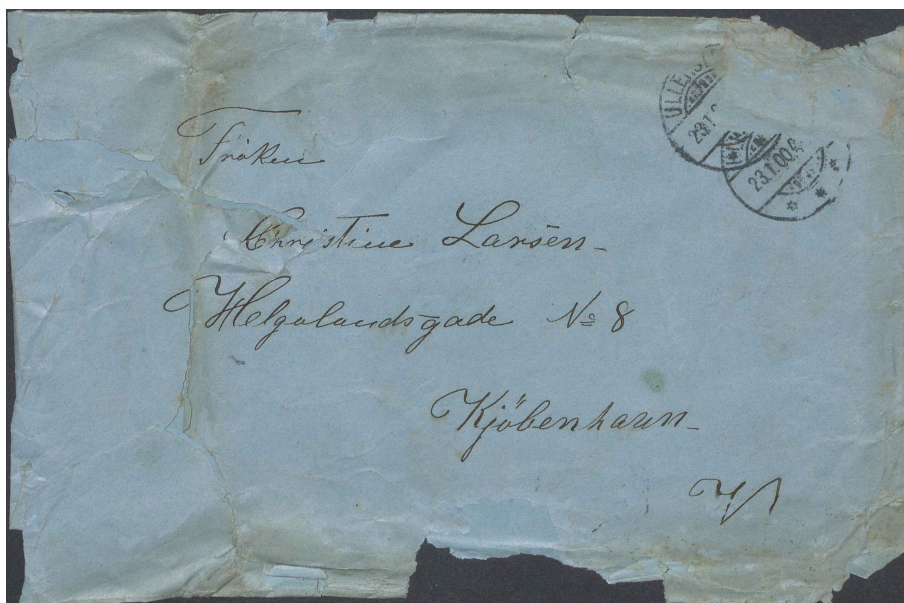 23.1.00.
Fröken
Christine Larsen-
Helgolandsgade No 8
Kjöbenhavn-
V